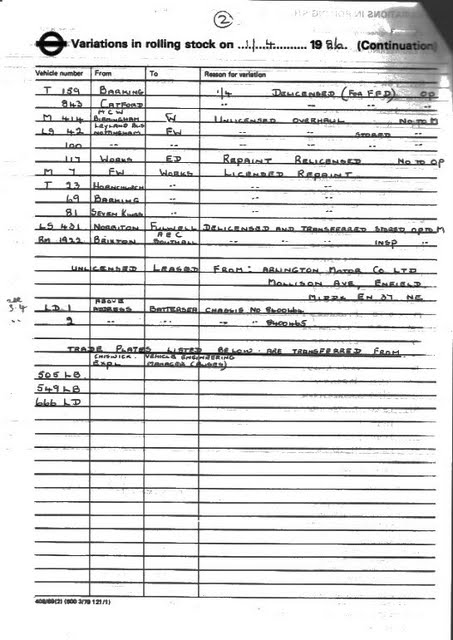 2
Variations in rolling stock on 1/4 19 86. (Continuation)
Vehicle number From To Reason for variation
T 159 BARKING 1/4 DELICENSED (FOR FFD) OP
843 CATFORD " " "
M 414 MCW BIRMINGHAM FW UNLICENSED OVERHAUL NO TO M
LS 42 LEYLAND BUS NOTTINGHAM FW " " STORED "
100 " " " " "
117 WORKS ED REPAINT RELICENSED NO TO OP
M 7 FW WORKS LICENSED REPAINT
T 23 HORNCHURCH " " "
69 BARKING " " "
81 SEVEN KINGS " " "
LS 431 NORBITON FULWELL DELICENSED AND TRANSFERRED STORED OP TO M
RM 1922 BRIXTON AEC SOUTHALL " " " INSP "
UNLICENSED LEASED FROM: ARLINGTON MOTOR CO LTD
MOLLISON AVE, ENFIELD
MIDDX EN 37 NE
3.4 LD 1 ABOVE ADDRESS BATTERSEA CHASSIS NO 8400464
" 2 " " " " 8400465
TRADE PLATES LISTED BELOW ARE TRANSFERRED FROM
CHISWICK EXPL VEHICLE ENGINEERING MANAGER (BUSES)
505 LB
549 LB
666 LD
408/69(2) (500 3/79 121/1)